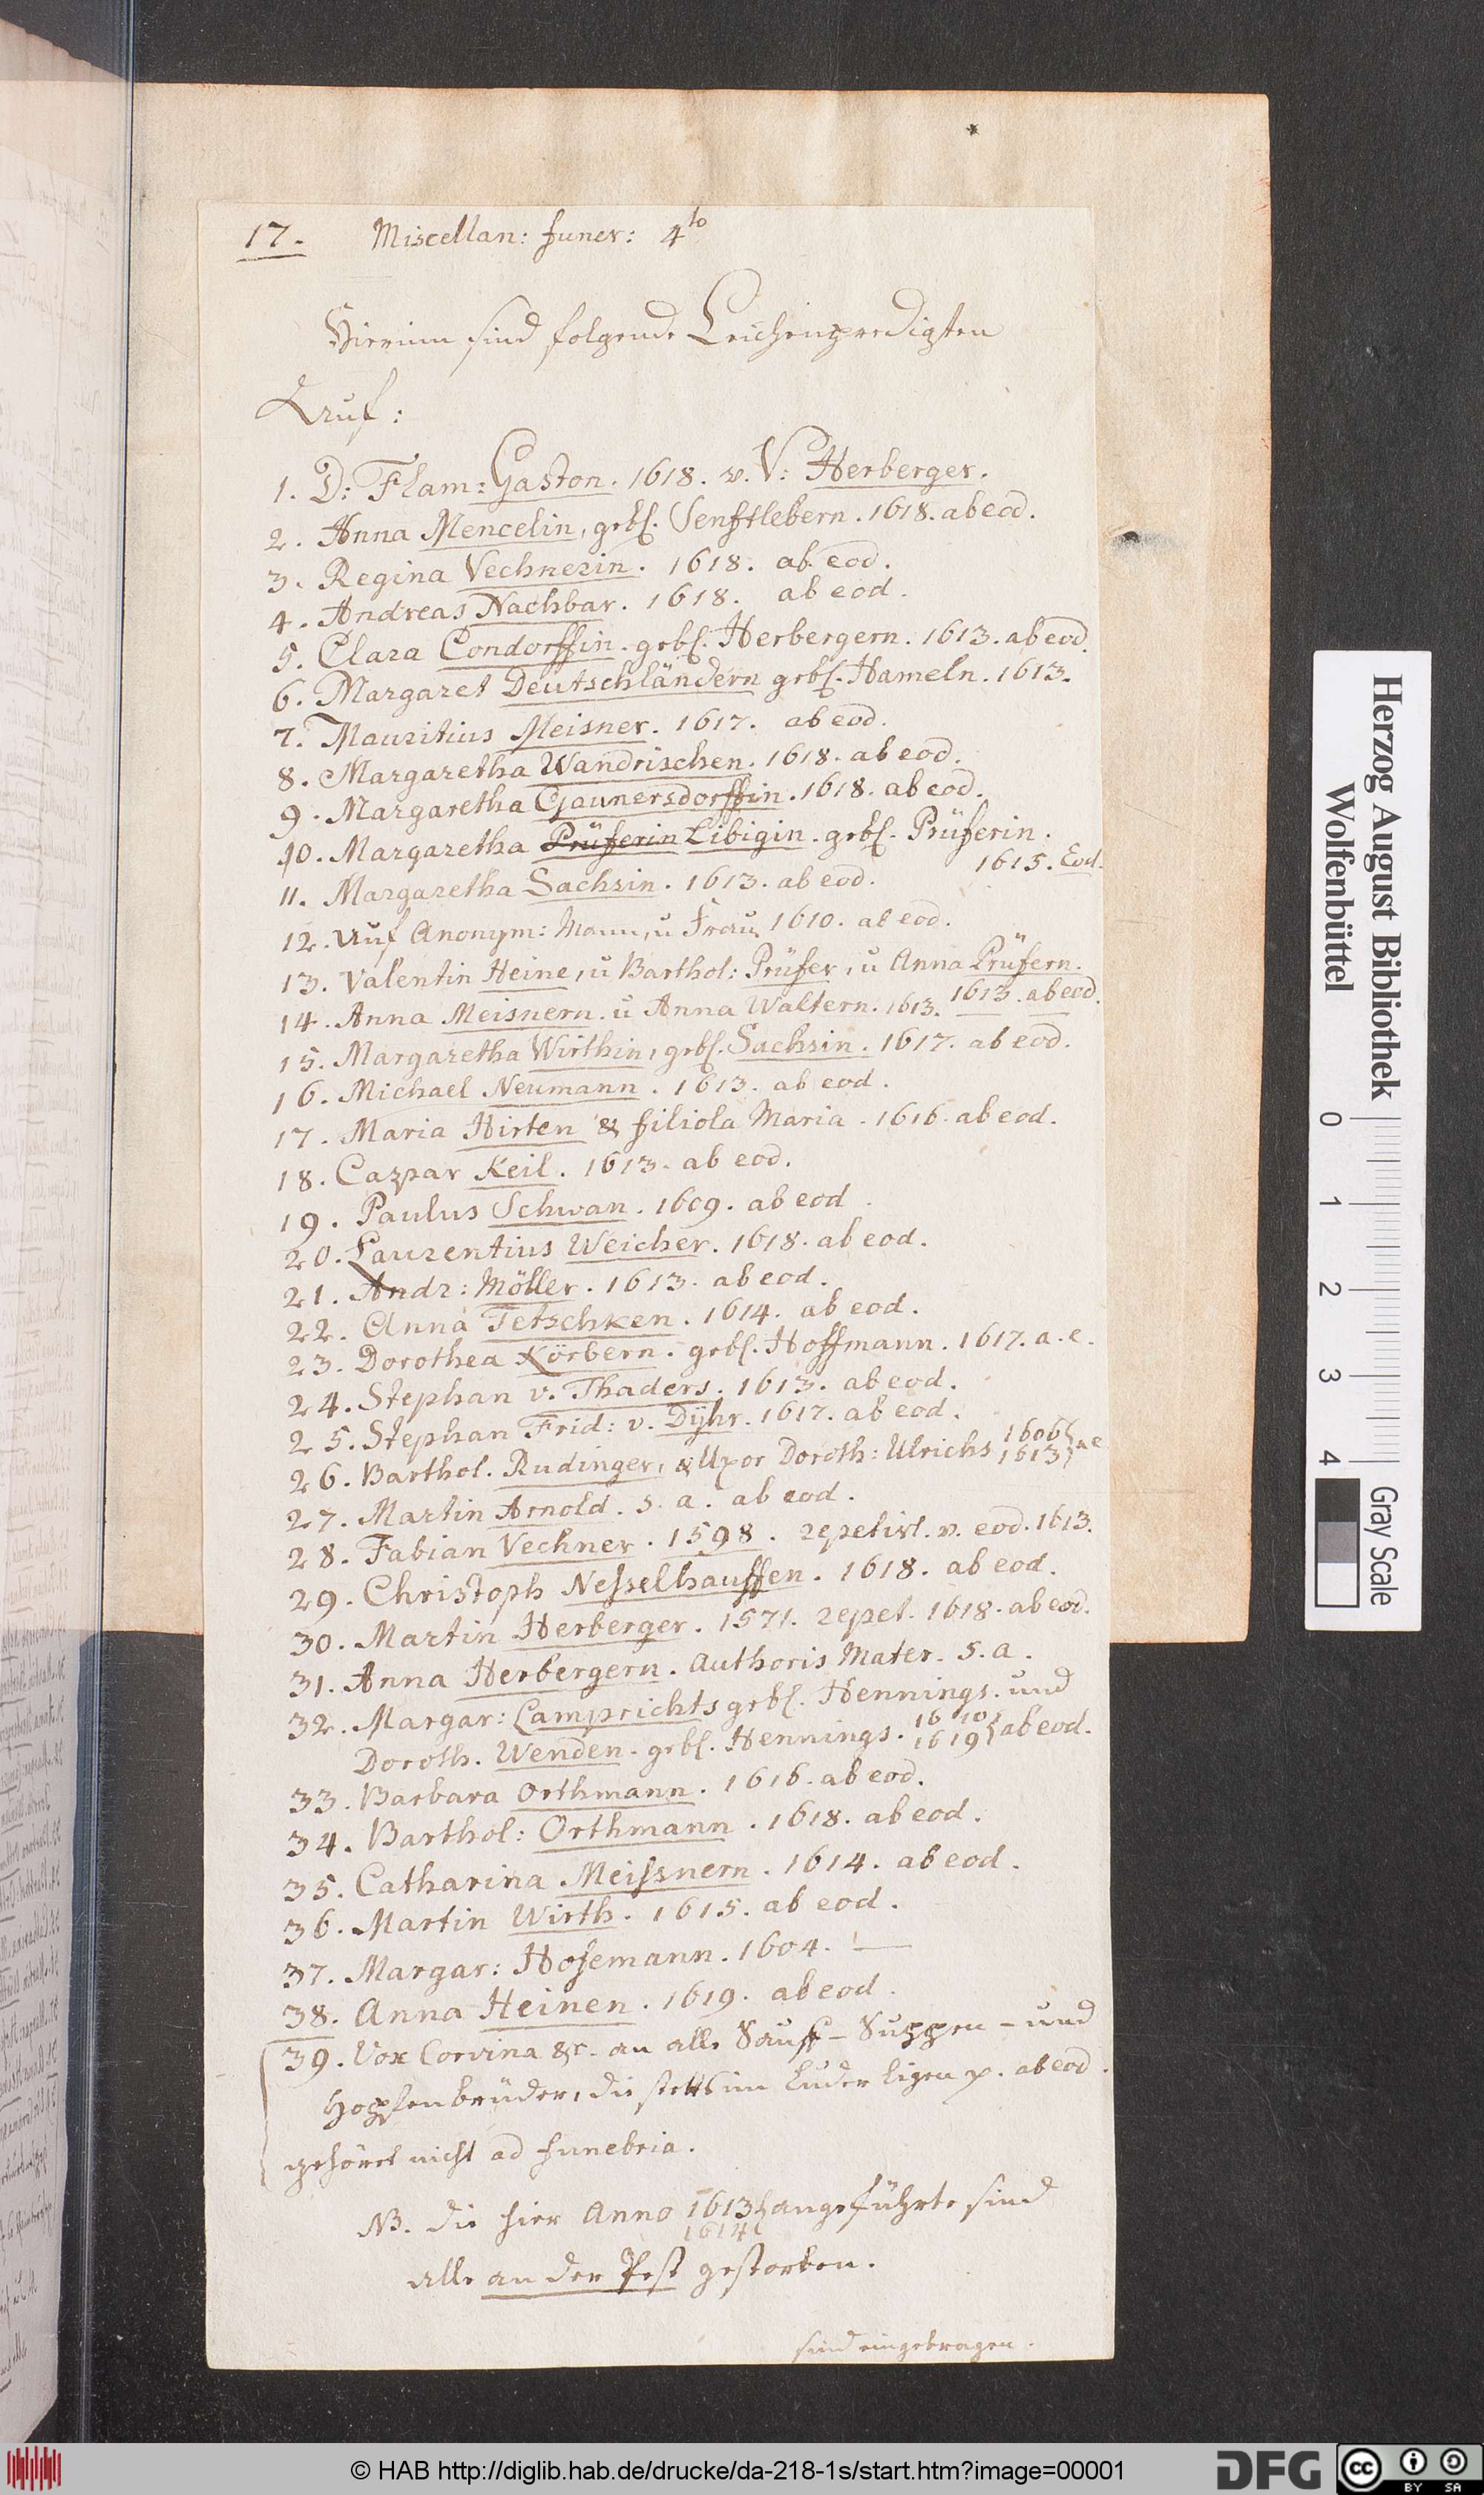 17. Miscellan: funer: 4to
Hierinn sind folgende Leichenpredigten
Auf:
1. D: Flam: Gaston. 1618. v. V: Herberger.
2. Anna Mencelin, gebl. Senftlebern. 1618. ab eod.
3. Regina Vechnerin. 1618. ab eod.
4. Andreas Nachbar. 1618. ab eod.
5. Clara Condorffin. gebl. Herbergern. 1613. ab eod.
6. Margaret Deutschländern gebl. Hameln. 1613.
7. Mauritius Meisner. 1617. ab eod.
8. Margaretha Wandrischen. 1618. ab eod.
9. Margaretha Gaunersdorffin. 1618. ab eod.
10. Margaretha Prüferin Libigin. gebl. Prüferin.
1615. Eod.
11. Margaretha Sachsin. 1613. ab eod.
12. Auf Anonym: Mann, u Frau 1610. ab eod.
13. Valentin Heine, u Barthol: Prüfer, u Anna Prüfern.
1613. ab eod.
14. Anna Meisnern. u Anna Waltern. 1613.
15. Margaretha Wirthin, gebl. Sachsin. 1617. ab eod.
16. Michael Neumann. 1613. ab eod.
17. Maria Hirten & filiola Maria. 1616. ab eod.
18. Caspar Keil. 1613. ab eod.
19. Paulus Schwan. 1609. ab eod.
20. Laurentius Weicher. 1618. ab eod.
21. Andr: Möller. 1613. ab eod.
22. Anna Tetschken. 1614. ab eod.
23. Dorothea Körbern. gebl. Hoffmann. 1617. a. e.
24. Stephan v. Thaders. 1613. ab eod.
25. Stephan Frid: v. Dÿhr. 1617. ab eod.
26. Barthol. Rudinger, & Uxor Doroth: Ulrichs 1606 1613 } a e
27. Martin Arnold. s. a. ab eod.
28. Fabian Vechner. 1598. repetirt. v. eod. 1613.
29. Christoph Nesselhauffen. 1618. ab eod.
30. Martin Herberger. 1571. repet. 1618. ab eod.
31. Anna Herbergern. Authoris Mater. s. a.
32. Margar: Lamprichts gebl. Hennings. und
Doroth. Wenden. gebl. Hennings. 1610 1619 } ab eod.
33. Barbara Orthmann. 1616. ab eod.
34. Barthol: Orthmann. 1618. ab eod.
35. Catharina Meissnern. 1614. ab eod.
36. Martin Wirth. 1615. ab eod.
37. Margar: Hosemann. 1604. —
38. Anna Heinen. 1619. ab eod.
39. Vox Corvina &c. an alle Sauff- Suppen- und
Hopfenbrüder, die stetts im Luder ligen p. ab eod.
gehöret nicht ad funebria.
NB. die hier Anno 1613 1614 } angeführte sind
alle an der Pest gestorben.
sind eingetragen.
Herzog August Bibliothek
Wolfenbüttel
0 1 2 3 4
Gray Scale
© HAB http://diglib.hab.de/drucke/da-218-1s/start.htm?image=00001
DFG
cc BY SA